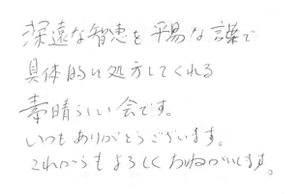 深遠な智恵を平易な言葉で
具体的に処方してくれる
素晴らしい会です。
いつもありがとうございます。
これからもよろしくおねがいします。